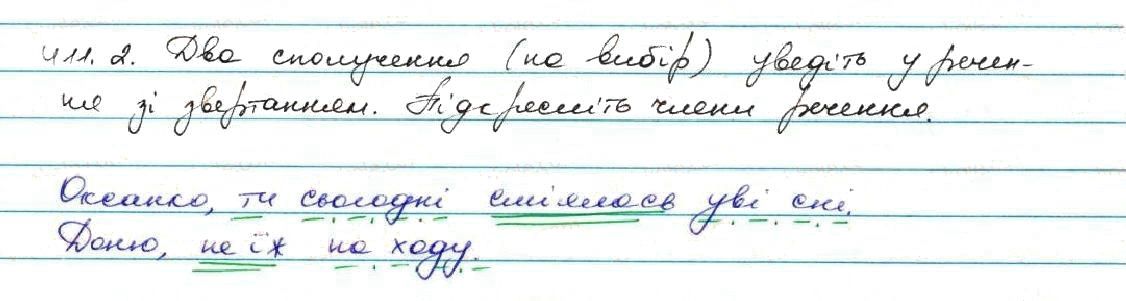 Ч11.2. Два сполучення (на вибір) уведіть у речен-
ня зі звертанням. Підкресліть члени речення.
Оксанко, ти сьогодні сміялась уві сні.
Даню, не їж на ходу.